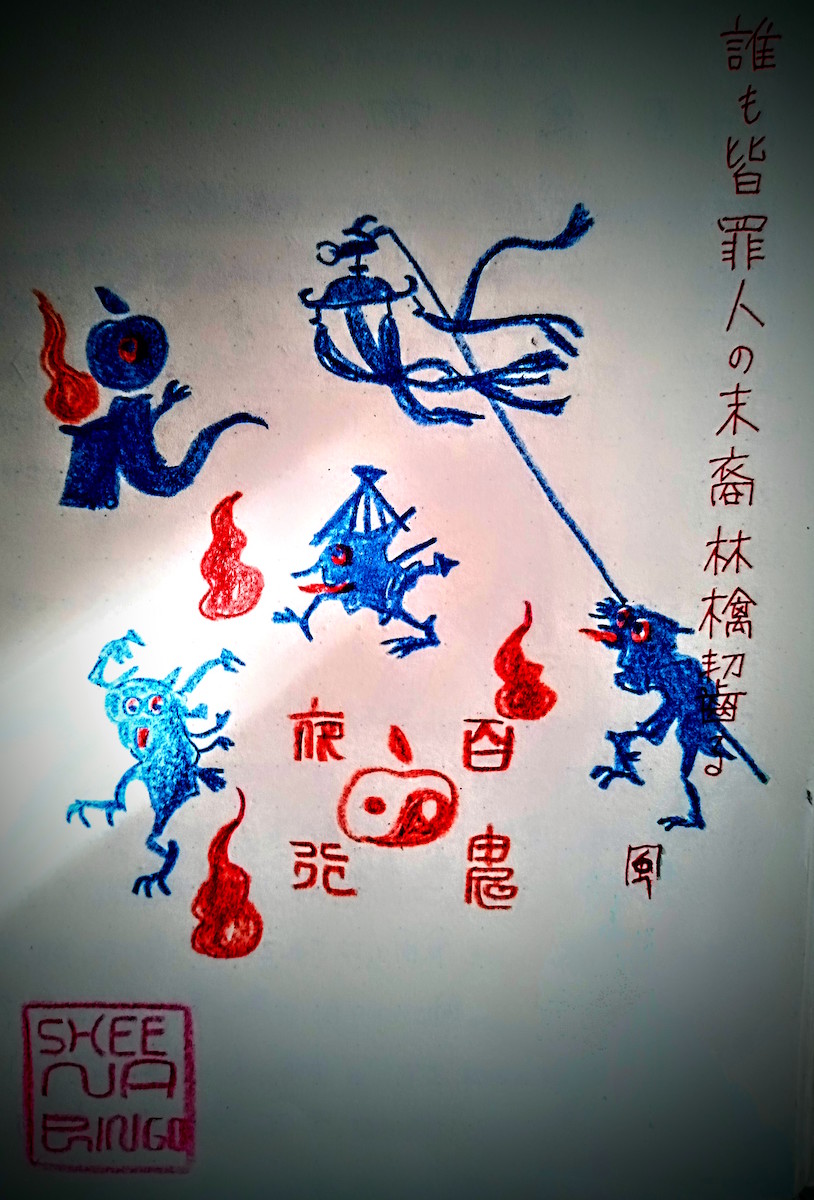 誰も皆罪人の末裔林檎齧る
風
百鬼
夜行
SHEE
NA
RINGO